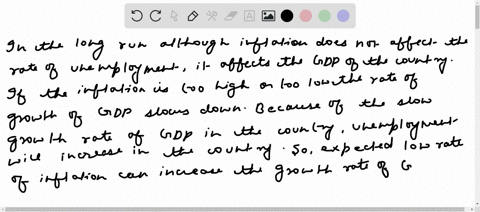 In the long run although inflation does not affect the
rate of unemployment, it affects the GDP of the country.
If the inflation is too high or too low the rate of
growth of GDP slows down. Because of the slow
growth rate of GDP in the country, unemployment
will increase in the country. So, expected low rate
of inflation can increase the growth rate of G